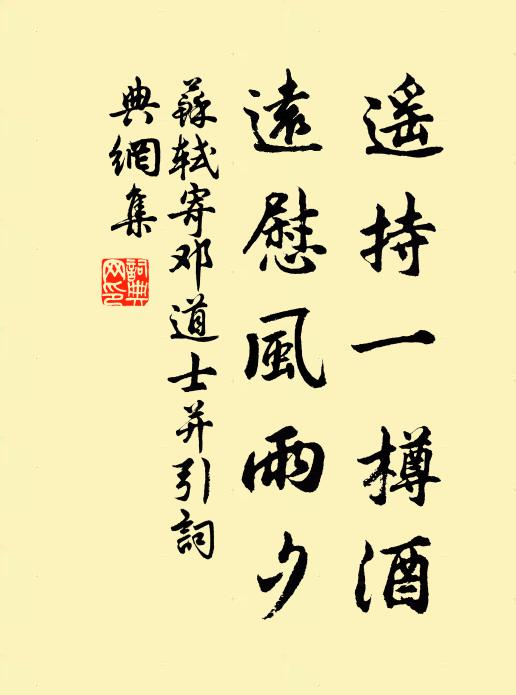 遥持一樽酒
遠慰風雨夕
蘇軾寄邓道士并引詞
典網集
詞典
网印